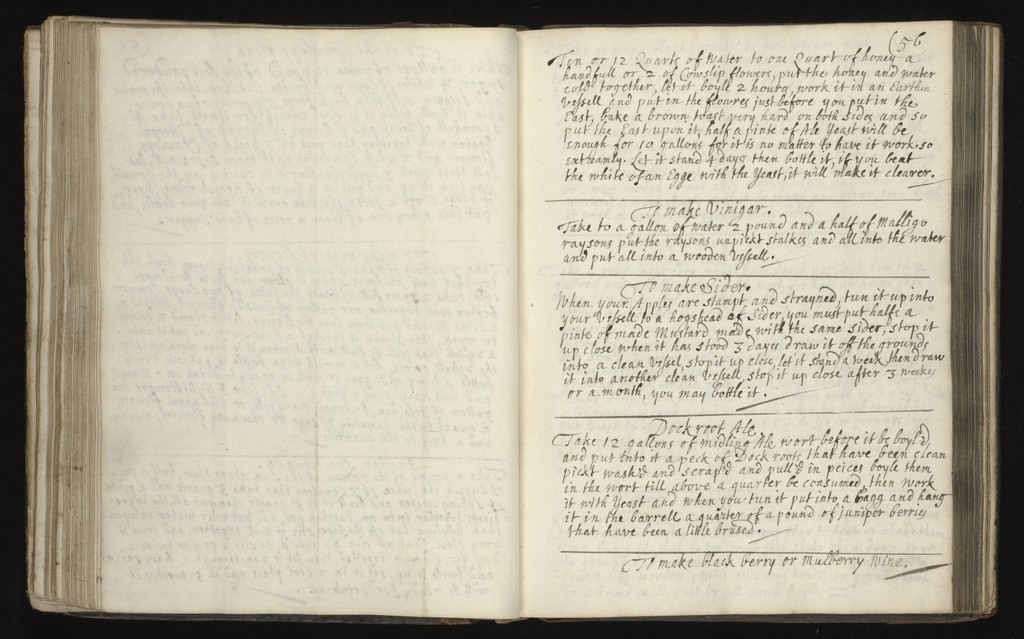 (56
Ten or 12 Quarts of Water to one Quart of honey a
handfull or 2 of Cowslip flowers, put the honey and water
cold together, let it boyle 2 hours, work it in an Earthen
Vessell and put in the flowres just before you put in the
East, bake a brown toast very hard on both sides and so
put the East upon it, half a pinte of Ale Yeast will be
enough for 10 gallons for it is no matter to have it work so
extreamly. Let it stand 4 days then bottle it, if you beat
the white of an Egge with the Yeast, it will make it clearer.
To make Vinigar.
Take to a gallon of water 2 pound and a half of Malligo
raysons put the raysons unpickt stalkes and all into the water
and put all into a wooden Vessell.
To make Sider.
When your Apples are stampt, and strayned, tun it up into
your Vessell to a hogshead of Sider, you must put halfe a
pinte of made Mustard made with the same sider, stop it
up close when it has stood 3 dayes draw it off the grounds
into a clean Vessel, stop it up close, let it stand a week then draw
it into another clean Vessell, stop it up close after 3 weekes
or a month, you may bottle it.
Dock root Ale
Take 12 gallons of midling Ale wort before it be boyl'd,
and put into it a peck of Dock roots that have been clean
pickt wash'd and scrap'd and pull'd in peices boyle them
in the wort till above a quarter be consumed, then work
it with Yeast and when you tun it put into a bagg and hang
it in the barrell a quarter of a pound of juniper berries
that have been a little brused.
To make black berry or mulberry wine.